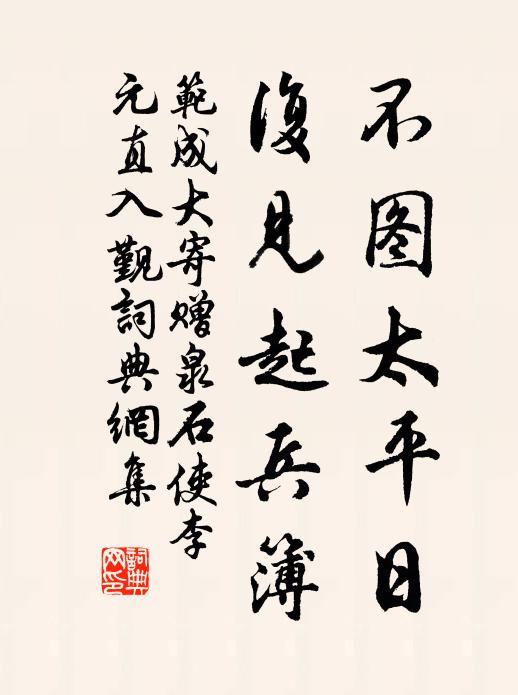 不图太平日
復見起兵簿
範成大寄赠泉石使李
元直入觐詞典網集
詞典网印